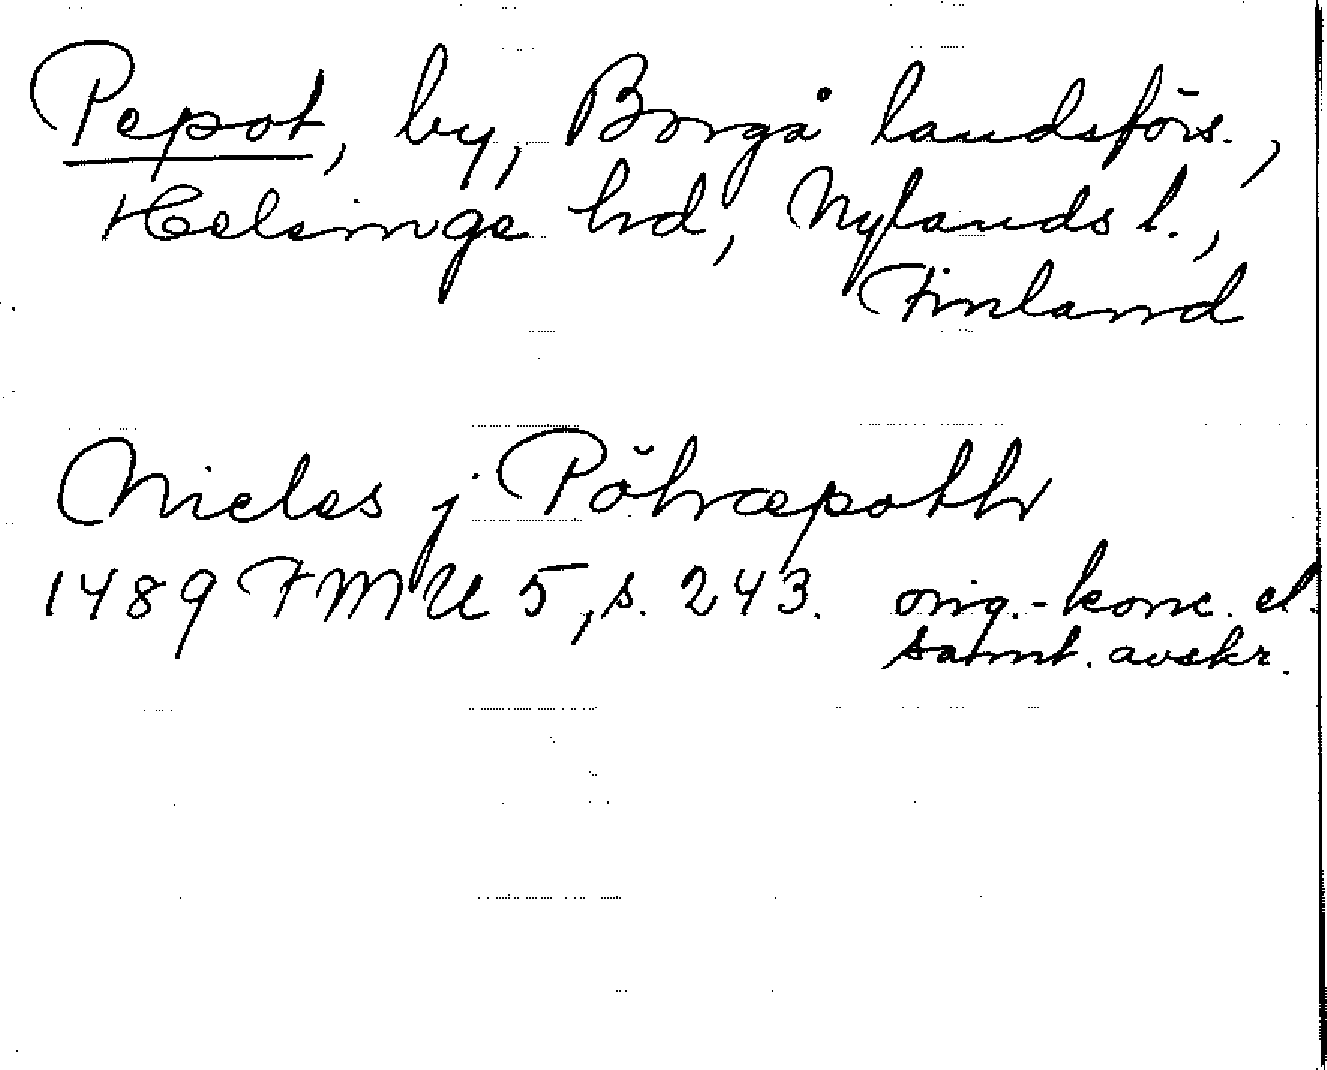 Pepot, by, Borgå landsförs.,
Helsinge hd, Nylands l.,
Finland
Nicles j Pöhræpotth
1489 FMU 5, s. 243. orig.-konc. el.
samt. avskr.